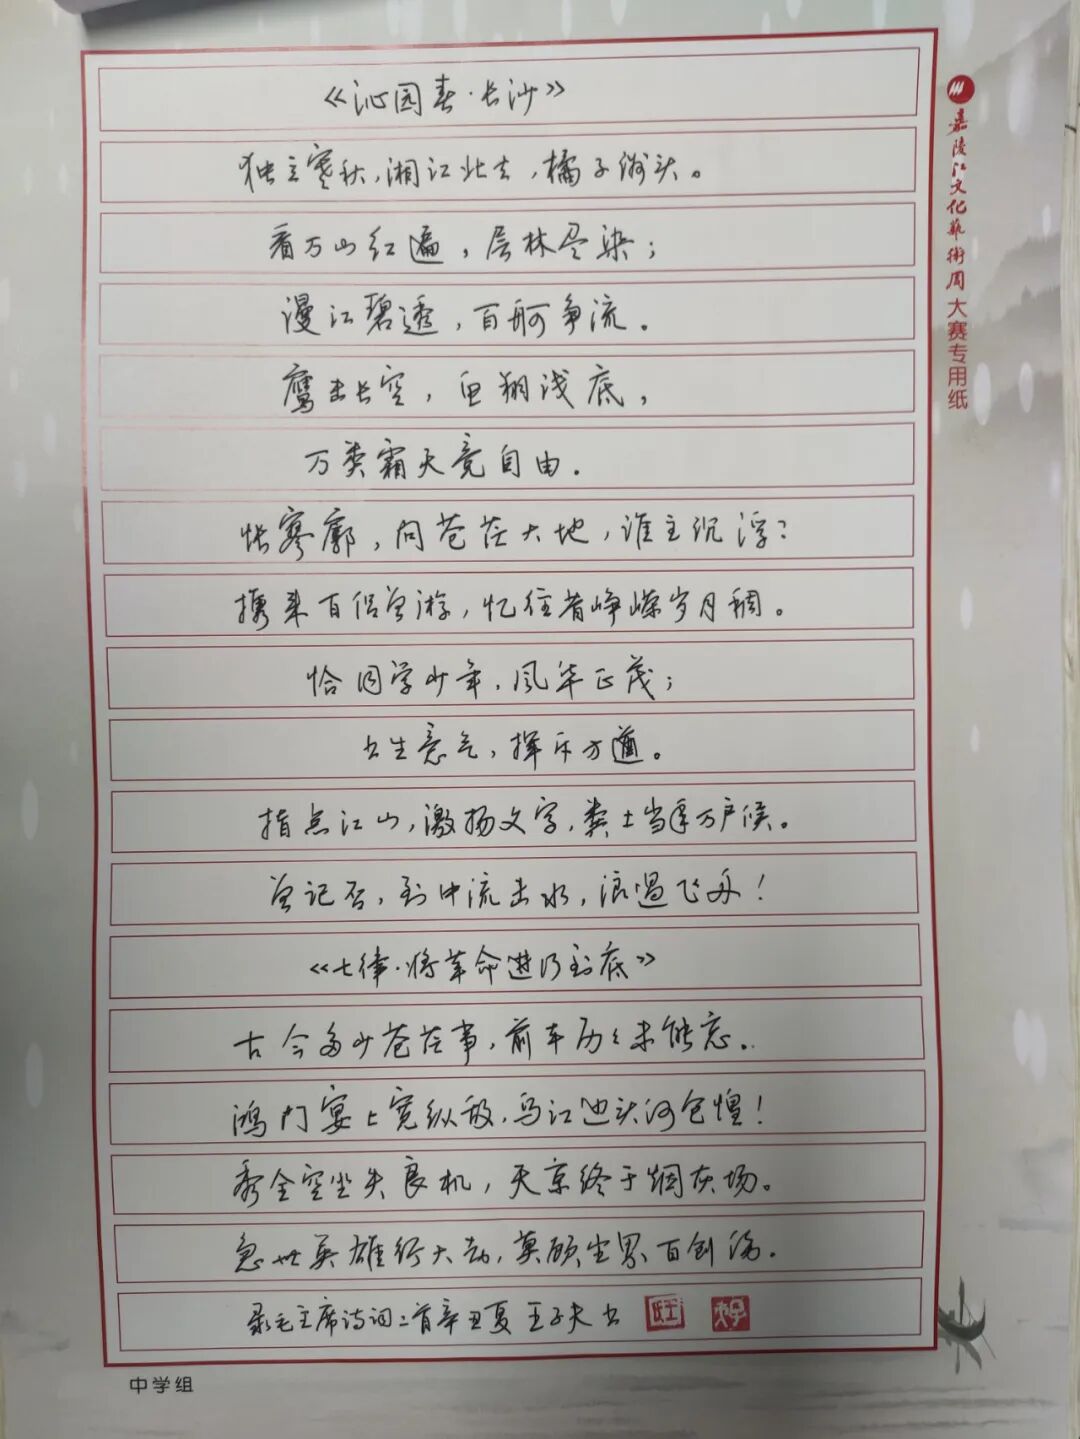 《沁园春·长沙》
独立寒秋,湘江北去,橘子洲头。
看万山红遍,层林尽染;
漫江碧透,百舸争流。
鹰击长空,鱼翔浅底,
万类霜天竞自由.
怅寥廓,问苍茫大地,谁主沉浮?
携来百侣曾游,忆往昔峥嵘岁月稠。
恰同学少年,风华正茂;
书生意气,挥斥方遒。
指点江山,激扬文字,粪土当年万户侯。
曾记否,到中流击水,浪遏飞舟!
《七律·将革命进行到底》
古今多少苍茫事,前车历历未能忘.
鸿门宴上宽纵敌,乌江边头何仓惶!
秀全空坐失良机,天京终于烟灰场。
急世英雄行大劫,莫顾尘界百创伤.
录毛主席诗词二首辛丑夏王子夫书
嘉陵江文化艺术周大赛专用纸
中学组